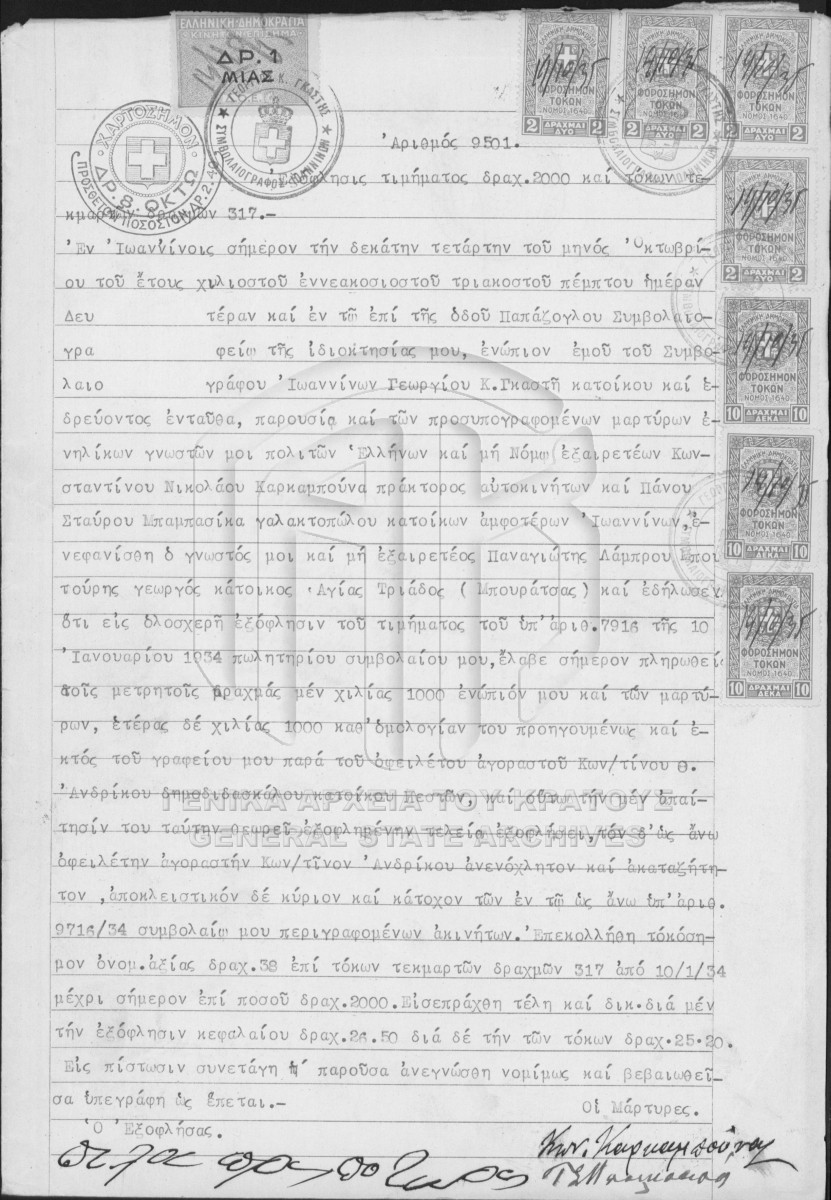 ΕΛΛΗΝΙΚΗ ΔΗΜΟΚΡΑΤΙΑ
ΚΙΝΗΤΟΝ ΕΠΙΣΗΜΑ
ΔΡ. 1
ΜΙΑΣ
ΧΑΡΤΟΣΗΜΟΝ
ΔΡ. 8. ΟΚΤΩ
ΠΡΟΣΘΕΤΟΝ ΠΟΣΟΣΤΟΝ ΔΡ. 2.
ΓΕΩΡΓΙΟΣ Κ. ΓΚΑΣΤΗΣ
ΣΥΜΒΟΛΑΙΟΓΡΑΦΟΣ ΙΩΑΝΝΙΝΩΝ
ΦΟΡΟΣΗΜΟΝ ΤΟΚΩΝ ΝΟΜΟΣ 1640 2 ΔΡΑΧΜΑΙ ΔΥΟ 2
ΦΟΡΟΣΗΜΟΝ ΤΟΚΩΝ ΝΟΜΟΣ 1640 2 2
ΦΟΡΟΣΗΜΟΝ ΤΟΚΩΝ ΝΟΜΟΣ 1640 2 ΔΡΑΧΜΑΙ ΔΥΟ 2
ΦΟΡΟΣΗΜΟΝ ΤΟΚΩΝ ΝΟΜΟΣ 1640 2 ΔΡΑΧΜΑΙ ΔΥΟ 2
ΦΟΡΟΣΗΜΟΝ ΤΟΚΩΝ ΝΟΜΟΣ 1640 10 ΔΡΑΧΜΑΙ ΔΕΚΑ 10
ΦΟΡΟΣΗΜΟΝ ΤΟΚΩΝ ΝΟΜΟΣ 1640 10 ΔΡΑΧΜΑΙ ΔΕΚΑ 10
ΦΟΡΟΣΗΜΟΝ ΤΟΚΩΝ ΝΟΜΟΣ 1640 10 ΔΡΑΧΜΑΙ ΔΕΚΑ 10
Ἀριθμός 9501.
Ἐξόφλησις τιμήματος δραχ.2000 καί τόκων τε-
κμαρτῶν δραχμῶν 317.-
Ἐν Ἰωαννίνοις σήμερον τήν δεκάτην τετάρτην τοῦ μηνός Ὀκτωβρί-
ου τοῦ ἔτους χιλιοστοῦ ἐννεακοσιοστοῦ τριακοστοῦ πέμπτου ἡμέραν
Δευ τέραν καί ἐν τῷ ἐπί τῆς ὁδοῦ Παπάζογλου Συμβολαιο-
γρα φείῳ τῆς ἰδιοκτησίας μου, ἐνώπιον ἐμοῦ τοῦ Συμβο-
λαιο γράφου Ἰωαννίνων Γεωργίου Κ.Γκαστῆ κατοίκου καί ἑ-
δρεύοντος ἐνταῦθα, παρουσίᾳ καί τῶν προσυπογραφομένων μαρτύρων ἐ-
νηλίκων γνωστῶν μοι πολιτῶν Ἑλλήνων καί μή Νόμῳ ἐξαιρετέων Κων-
σταντίνου Νικολάου Καρκαμπούνα πράκτορος αὐτοκινήτων καί Πάνου
Σταύρου Μπαμπασίκα γαλακτοπώλου κατοίκων ἀμφοτέρων Ἰωαννίνων,ἐ-
νεφανίσθη ὁ γνωστός μοι καί μή ἐξαιρετέος Παναγιώτης Λάμπρου Σποι
τούρης γεωργός κάτοικος Ἁγίας Τριάδος (Μπουράτσας) καί ἐδήλωσεν
ὅτι εἰς ὁλοσχερῆ ἐξόφλησιν τοῦ τιμήματος τοῦ ὑπ'ἀριθ.7916 τῆς 10
Ἰανουαρίου 1934 πωλητηρίου συμβολαίου μου,ἔλαβε σήμερον πληρωθείς
τοῖς μετρητοῖς δραχμάς μέν χιλίας 1000 ἐνώπιόν μου καί τῶν μαρτύ-
ρων, ἑτέρας δέ χιλίας 1000 καθ'ὁμολογίαν του προηγουμένως καί ἐ-
κτός τοῦ γραφείου μου παρά τοῦ ὀφειλέτου ἀγοραστοῦ Κων/τίνου Θ.
Ἀνδρίκου δημοδιδασκάλου κατοίκου Πεστῶν, καί οὕτω τήν μέν ἀπαί-
τησίν του ταύτην θεωρεῖ ἐξοφλημένην τελείᾳ ἐξοφλήσει,τόν δ'ὡς ἄνω
ὀφειλέτην ἀγοραστήν Κων/τῖνον Ἀνδρίκου ἀνενόχλητον καί ἀκαταζήτη-
τον ,ἀποκλειστικόν δέ κύριον καί κάτοχον τῶν ἐν τῷ ὡς ἄνω ὑπ'ἀριθ.
9716/34 συμβολαίῳ μου περιγραφομένων ἀκινήτων.Ἐπεκολλήθη τόκόση-
μον ὀνομ.ἀξίας δραχ.38 ἐπί τόκων τεκμαρτῶν δραχμῶν 317 ἀπό 10/1/34
μέχρι σήμερον ἐπί ποσοῦ δραχ.2000.Εἰσεπράχθη τέλη καί δικ.διά μέν
τήν ἐξόφλησιν κεφαλαίου δραχ.26.50 διά δέ τήν τῶν τόκων δραχ.25.20.
Εἰς πίστωσιν συνετάγη ἡ παροῦσα ἀνεγνώσθη νομίμως καί βεβαιωθεῖ-
σα ὑπεγράφη ὡς ἕπεται.- Οἱ Μάρτυρες.
Ὁ Ἐξοφλήσας.
Κων. Καρκαμπούνας
ΓΕΝΙΚΑ ΑΡΧΕΙΑ ΤΟΥ ΚΡΑΤΟΥΣ
GENERAL STATE ARCHIVES